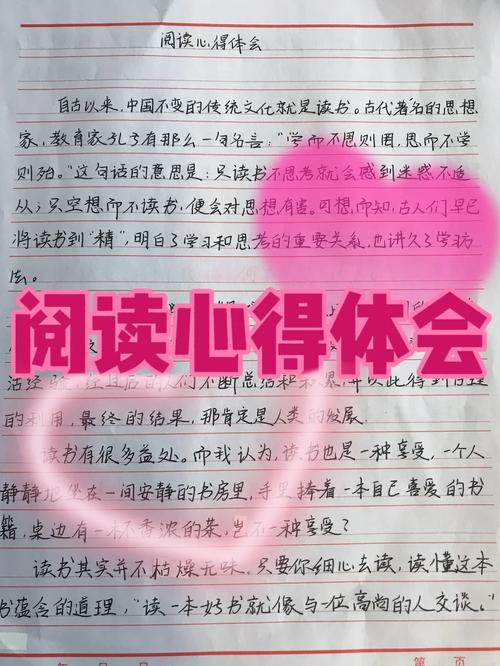 阅读心得体会
自古以来,中国不变的传统文化就是读书。古代著名的思想
家,教育家孔子有那么一句名言:"学而不思则罔,思而不学
则殆。"这句话的意思是:只读书不思考就会感到迷惑不适
从;只空想而不读书,便会对思想有害。可想而知,古人们早已
将读书到"精",明白了学习和思考的重要关系,也讲久了学习方
法。
阅读心得体会
活经验,经过后的人们不断总结和积累,并以此得到合理
的利用,最终的结果,那肯定是人类的发展.
读书有很多益处。而我认为,读书也是一种享受,一个人
静静地坐在一间安静的书房里,手里捧着一本自己喜爱的书
籍,桌边有一杯香浓的茶,岂不一种享受?
读书其实并不枯燥无味.只要你细心去读,读懂这本
书蕴含的道理,"读一本好书就像与一位高尚的人交谈。"
年 月 日 第 页